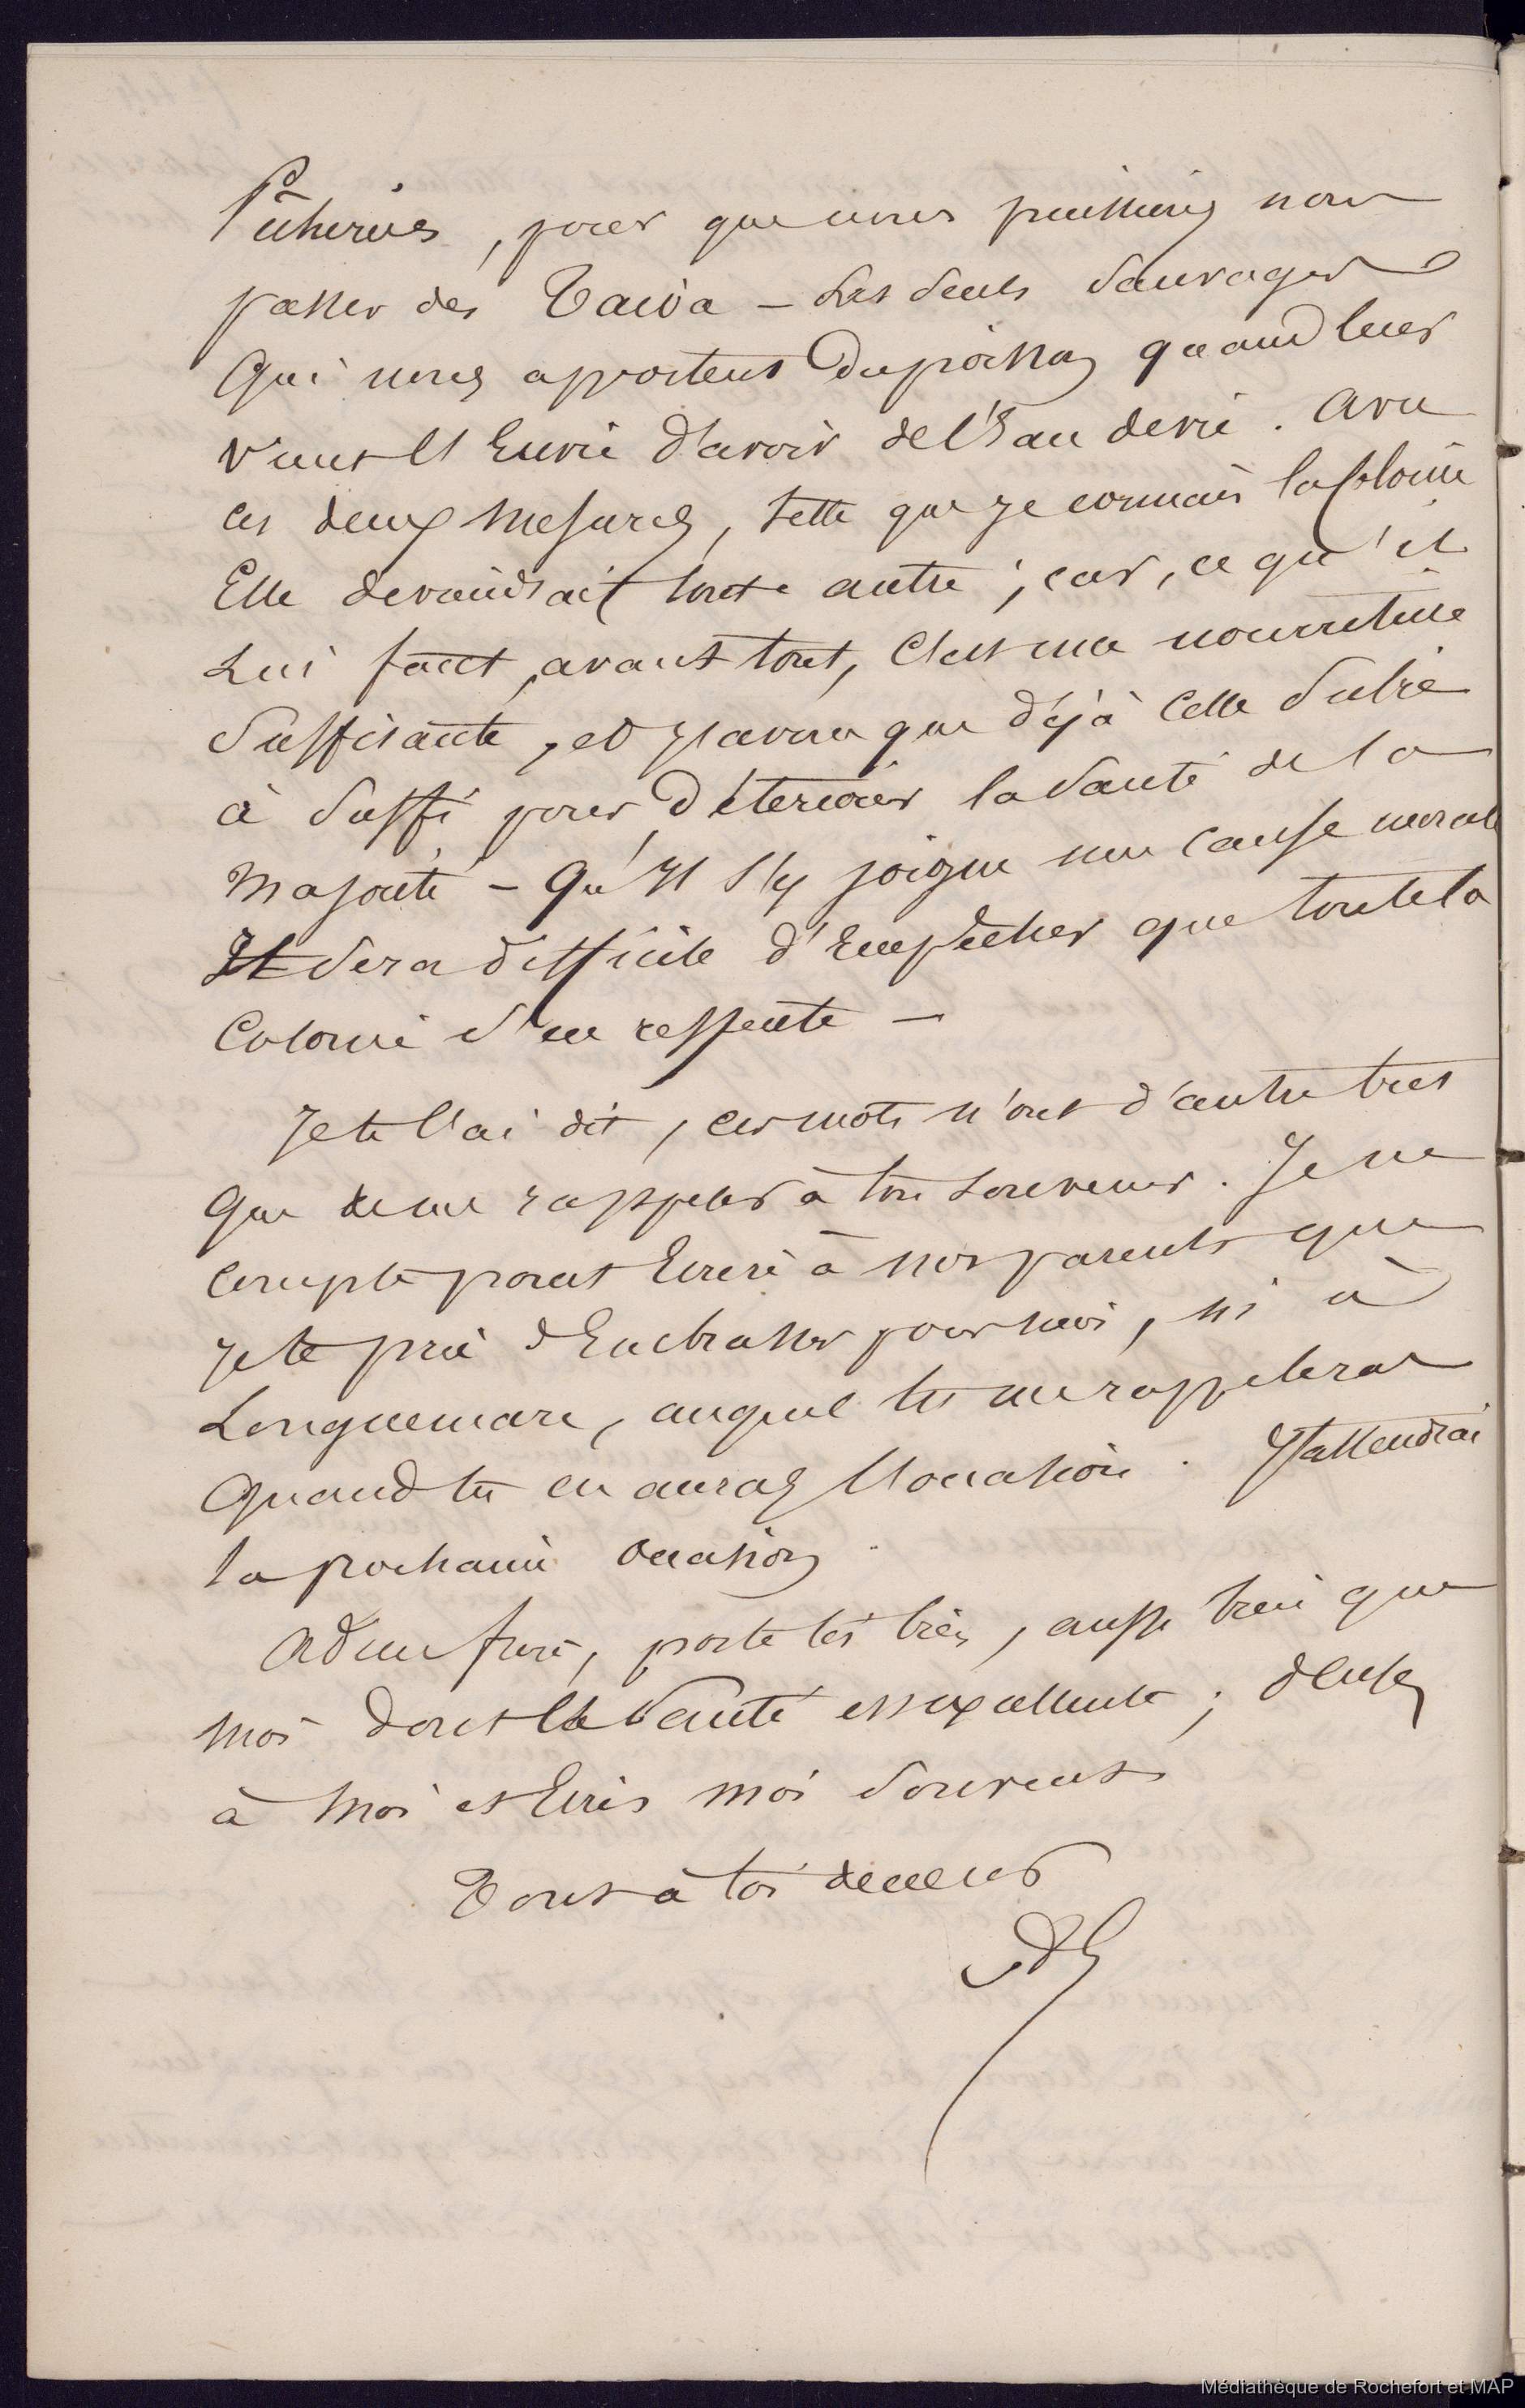 Pêcheries, pour que nous puissions nous
passer des Tawa - Les seuls sauvages
Qui nous apportent du poisson quand leur
vient l'Envie d'avoir de l'Eau de vie. Avec
ces deux mesures, telle que je connais la Colonie
Elle deviendrait toute autre ; car, ce qu'il
Lui faut, avant tout, C'est une nourriture
Suffisante, et j'avoue que déjà Celle Subie
à Suffi pour Détériorer la Santé de la
Majorité - Qu'Il s'y joigne une Cause morale
Il Sera difficile d'Empêcher que toute la
Colonie s'en ressente -
Je te l'ai dit, ces mots n'ont d'autre but
Que de me rappeler à ton Souvenir. Je ne
compte point Ecrire à nos parents que
je te prie d'Embrasser pour moi, ni à
Longuemare, auquel tu me rappeleras
Quand tu en auras l'occasion. J'attendrai
la prochaine occasion
Adieu frère, porte toi bien, aussi bien que
Moi dont la Santé est excellente ;
à Moi et Ecris moi Souvent
Tout à toi de cœur